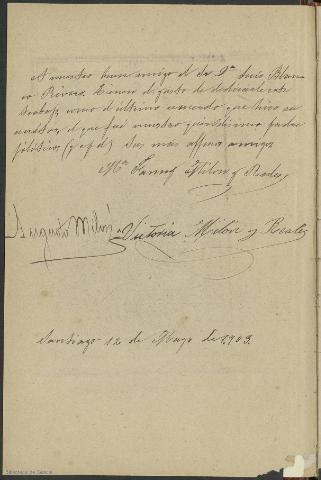 A nuestro buen amigo el Sr. Dn. Luis Blanco
Rivero. Tienen el gusto de dedicarle este
trabajo, como el último recuerdo que hizo su
autor, el que fué nuestro queridísimo padre
político (q e p d) Sus más affmos amigos
Mª Fanny Milón y Reales
Augusto Milón Victoria Milón y Reales
Santiago 12 de Mayo de 1903.
Biblioteca de Galicia